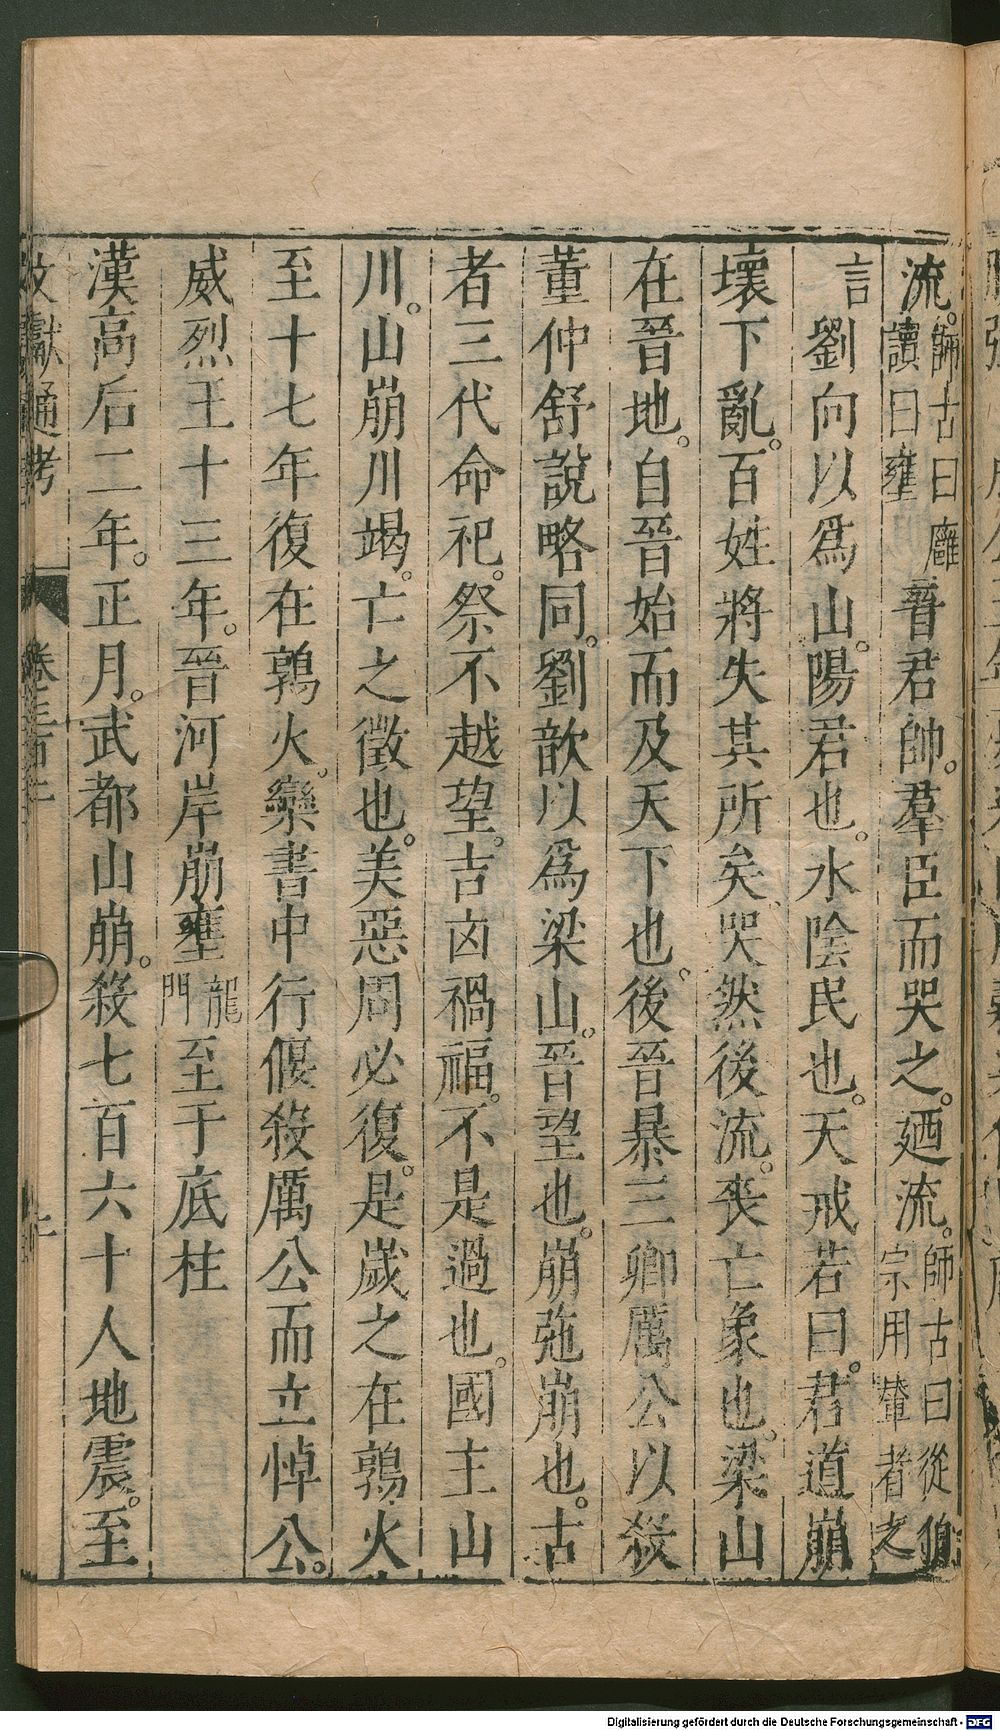 流。師古曰廱讀曰壅晉君帥。羣臣而哭之。廼流。師古曰從伯宗用輦者之
言劉向以爲山。陽君也。水陰民也。天戒若曰。君道崩
壞下亂。百姓將失其所矣哭然後流。喪亡象也。梁山
在晉地。自晉始而及天下也。後晉暴三卿厲公以殺
董仲舒說略同。劉歆以爲梁山。晉望也。崩弛崩也。古
者三代命祀。祭不越望。吉凶禍福。不是過也。國主山
川。山崩川竭。亡之徵也。美惡周必復。是歲之在鶉火
至十七年復在鶉火。欒書中行偃殺厲公而立悼公。
威烈王十三年。晉河岸崩壅龍門至于底柱
漢高后二年。正月。武都山崩。殺七百六十人地震。至
文獻通考
Digitalisierung gefördert durch die Deutsche Forschungsgemeinschaft - DFG